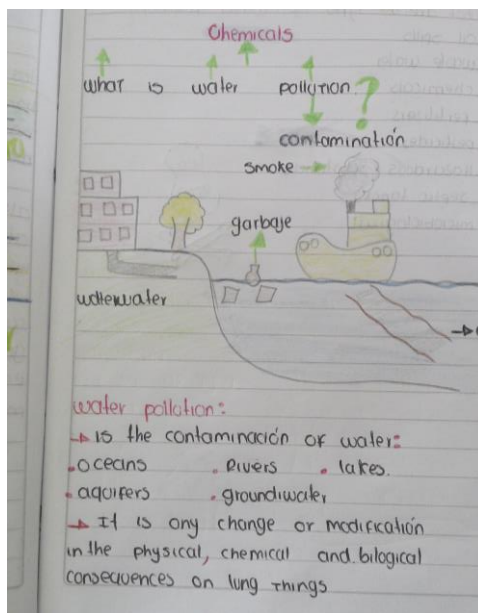 Chemicals
what is water pollution ?
contamination
smoke
garbaje
water pollution:
is the contaminación of water:
.oceans .Rivers .lakes.
.aquifers .groundiwater
It is any change or modification
in the physical, chemical and bilogical
consequences on lung Things